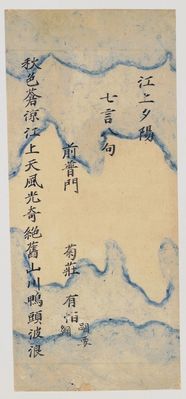 江上夕陽
七言八句
前普門
菊莊 有怕
秋色蒼涼江上天風光奇絕舊山川鴨頭波浪